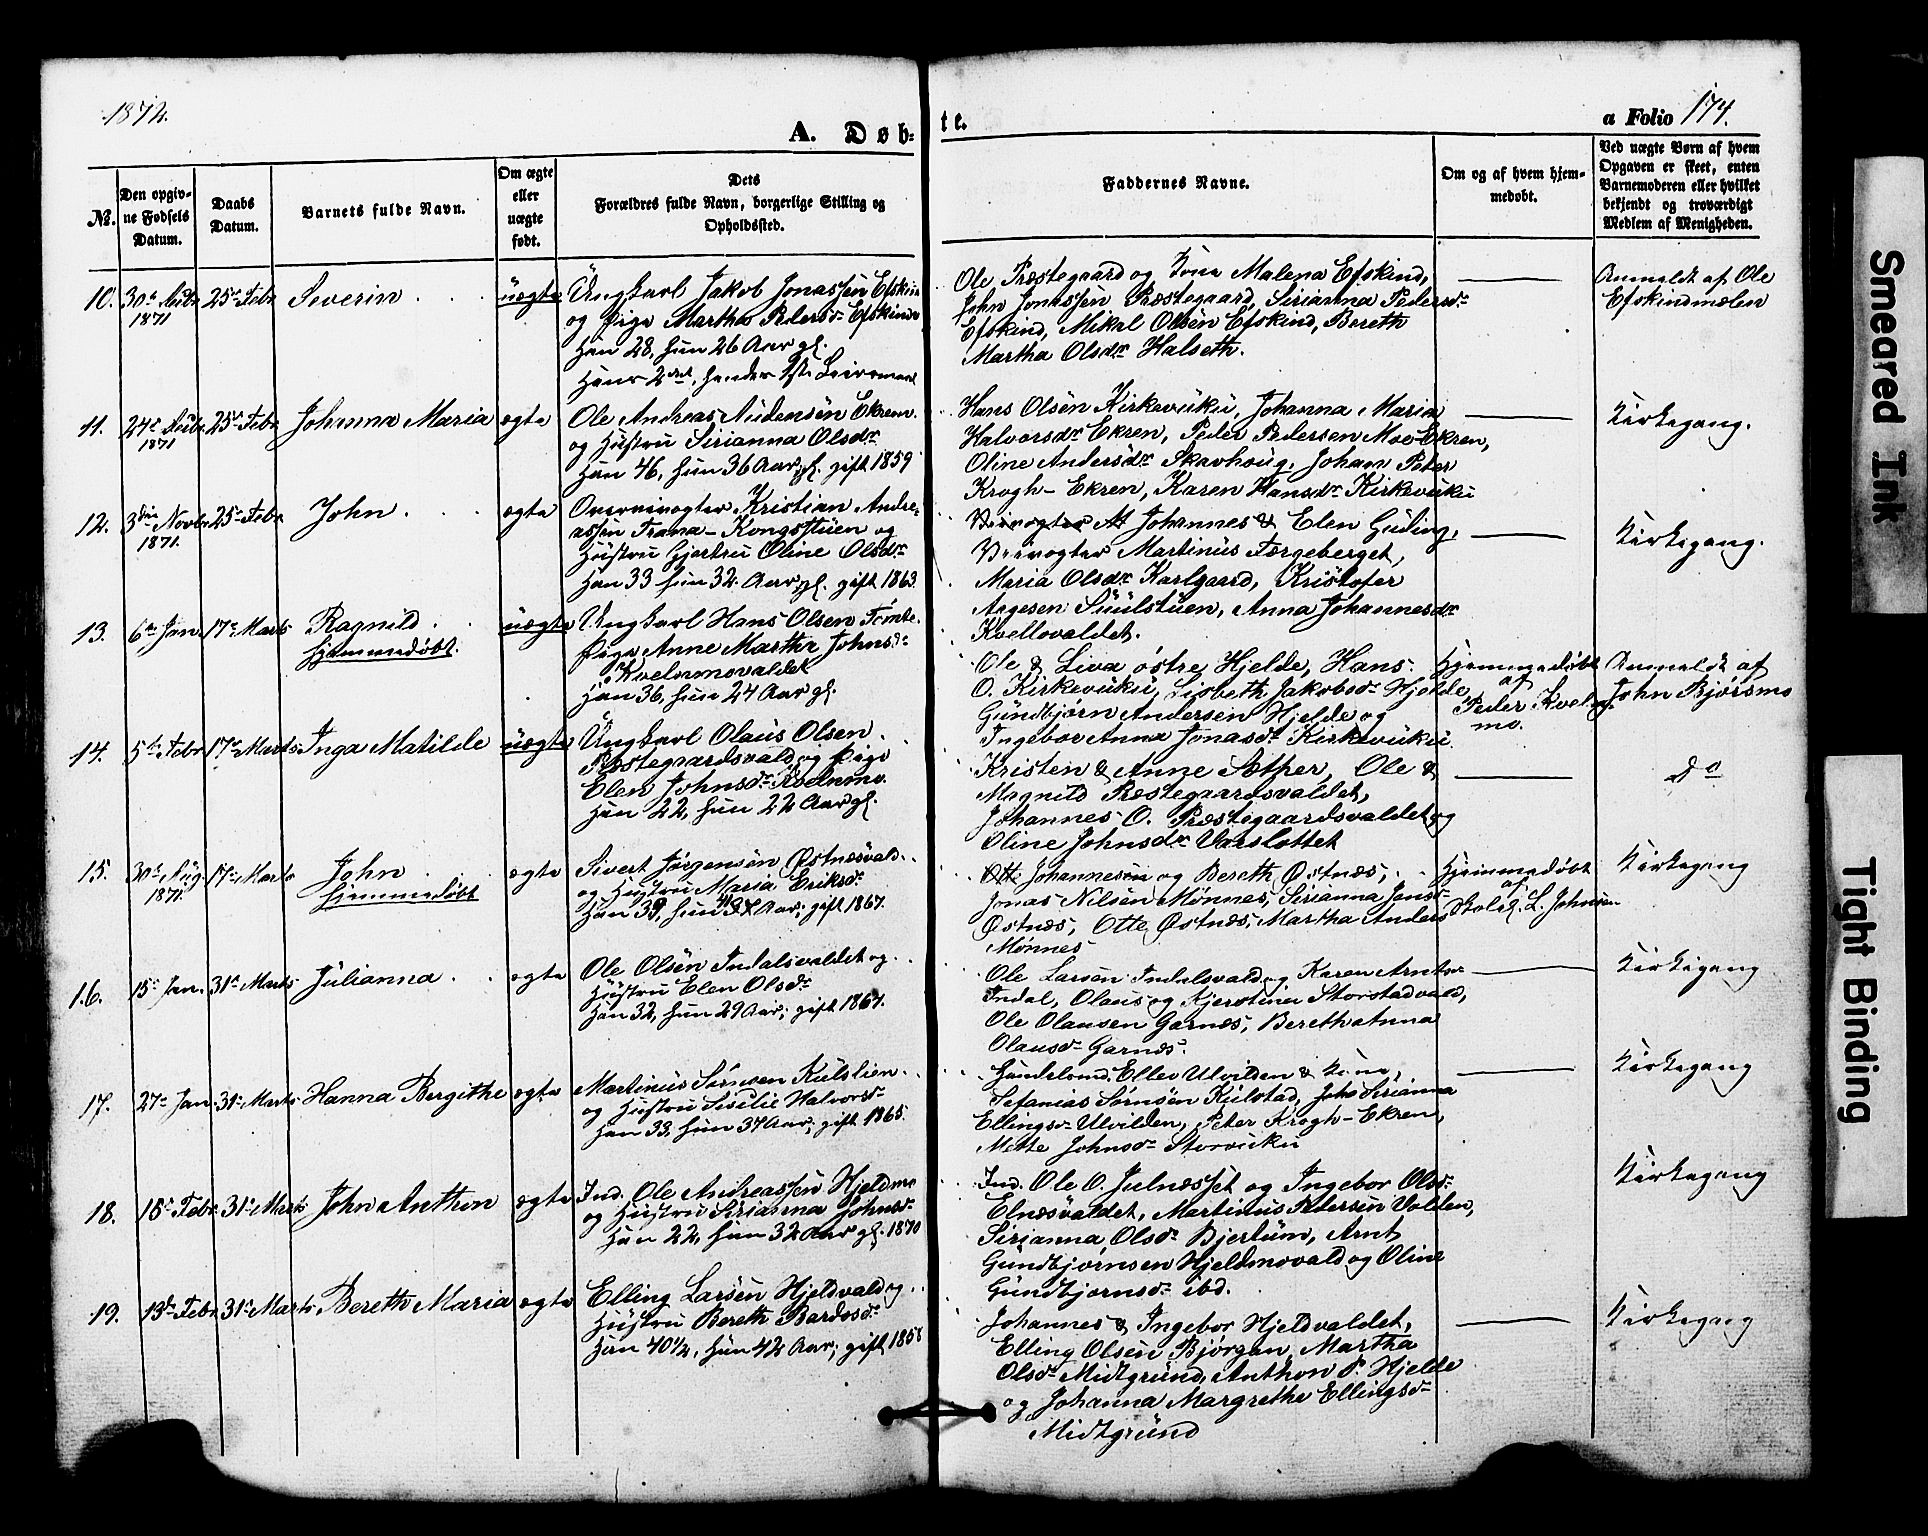 1872.
A. Døb-
te.
a Folio 174.
No.
Den opgiv-
ne Fødsels
Datum.
Daabs
Datum.
Barnets fulde Navn.
Om ægte
eller
uægte
født.
Dets
Forældres fulde Navn, borgerlige Stilling og
Opholdssted.
Faddernes Navne.
Om og af hvem hjem-
medøbt.
Ved uægte Børn af hvem
Opgaven er skeet, enten
Barnemoderen eller hvilket
bekjendt og troværdigt
Medlem af Menigheden.
10.
1871
25de Febr
Severin
uægte
Ungkarl Jakob Jonassen Efskin
og Pige Martha Pedersdr Efskind
Han 28, hun 26 Aar gl.
Hans 2det, hendes 1ste Leiermaal
Ole Præstegaard og Kone Malena Efskind,
John Jonassen Præstegaard, Sirianna Pedersdr
Efskind, Mikal Olsen Efskind, Bereth
Martha Olsdr Halseth.
Anmeldt af Ole
Efskindmælen
11.
1871
25de Febr
Johanna Maria
ægte
Ole Andreas Audensen Ekren
og Hustru Sirianna Olsdr
Han 46, hun 36 Aar gl. gift 1859
Hans Olsen Kirkevuku, Johanna Maria
Halvorsdr Ekren, Peder Pedersen Moe-Ekren,
Oline Andersdr Skavhoug, Johan Peter
Krogh-Ekren, Karen Hansdr Kirkevuku
Kirkegang.
12.
3die Novbr
1871.
25de Febr
John
ægte
Kristian Andre-
assen Trana-Kongsstuen og
Hustru Gjertru Oline Olsdr
Han 33 hun 32 Aar gl. gift 1863
Johannes & Elen Guding,
Martinus Færgeberget,
Maria Olsdr Karlgaard, Kristofer
Aagesen Suulstuen, Anna Johannesdr
Kvellovaldet.
Kirkegang.
13.
6te Jan
17de Marts
Ragnild
Hjemmedøbt.
uægte
Ungkarl Hans Olsen Tomte
Pige Anne Martha Johnsdr
Kvelmovaldet
Han 36, hun 24 Aar gl.
Ole & Liva østre Hjelde, Hans
O. Kirkevuku, Lisbeth Jakobsdr Hjelde,
Gundbjørn Andersen Hjelde og
Ingebor Anna Jonasdr Kirkevuku
Hjemmedøbt
af
Peder Kvel-
mo.
Anmeldt af
John Bjørsmo
14.
5te Febr
17de Marts
Inga Matilde
uægte
Ungkarl Olaus Olsen
Præstegaardsvald og Pige
Elen Johnsdr Kvelmo
Han 22, hun 22 Aar gl.
Kristen & Anne Sæther, Ole &
Magnild Præstegaardsvaldet,
Johannes O. Præstegaardsvaldet og
Oline Johnsdr Varslottet
Do
15.
30te Aug.
1871.
17de Marts
John
Hjemmedøbt
ægte
Sivert Jørgensen Østnæsvald
og Hustru Maria Eriksdr
gift 1867.
Johannesen og Bereth Østnæs,
Jonas Nilsen Mønnes, Sirianna Jensdr
Østnæs, Otte Østnæs, Martha Anders
Mønnes
Hjemmedøbt
af
L. Johnsen
Kirkegang
16.
15de Jan.
31te Marts
Julianna
ægte
Ole Olsen Indalsvaldet og
Hustru Elen Olsdr
Han 32, hun 29 Aar; gift 1867.
Ole Larsen Indalsvald og Karen Arntsdr
Indal, Olaus og Kjerstina Storstadvald,
Ole Olausen Garnæs, Bereth Anna
Olausdr Garnæs.
Kirkegang
17.
27de Jan.
31te Marts
Hanna Bergithe
ægte
Martinus Sørnsen Kulslien
og Hustru Sisilie Halvorsdr
Han 33, hun 37 Aar; gift 1865.
Ellev Ulvilden & Kone,
Sefanias Sørnsen Kulstad, Sirianna
Ellingsdr Ulvilden, Peter Krogh-Ekren,
Mette Johnsdr Storvuku
Kirkegang
18.
31te Marts
John Anthon
ægte
Ind. Ole Andreassen Hjeldmo
og Hustru Sirianna Johnsdr
Han 22, hun 32 Aar gl. 1870
Ind. Ole O. Julnæsset og Ingebor Olsdr
Elnesvaldet, Martinus Pedersen Volden,
Sirianna Olsdr Bjertum, Arnt
Gundbjørnsen Hjeldmovald og Oline
Gundbjørnsdr ibd.
Kirkegang
19.
13de Febr
31te Marts
Bereth Maria
ægte
Elling Larsen Hjeldvald og
Hustru Bereth Bardosdr
Han 40½, hun 42 Aar; gift
Johannes & Ingebor Hjeldvaldet,
Elling Olsen Bjørgan, Martha
Olsdr Midtgrund, Anthon P. Hjelde
og Johanna Margrethe Ellingsdr
Midtgrund
Kirkegang
Smeared Ink
Tight Binding